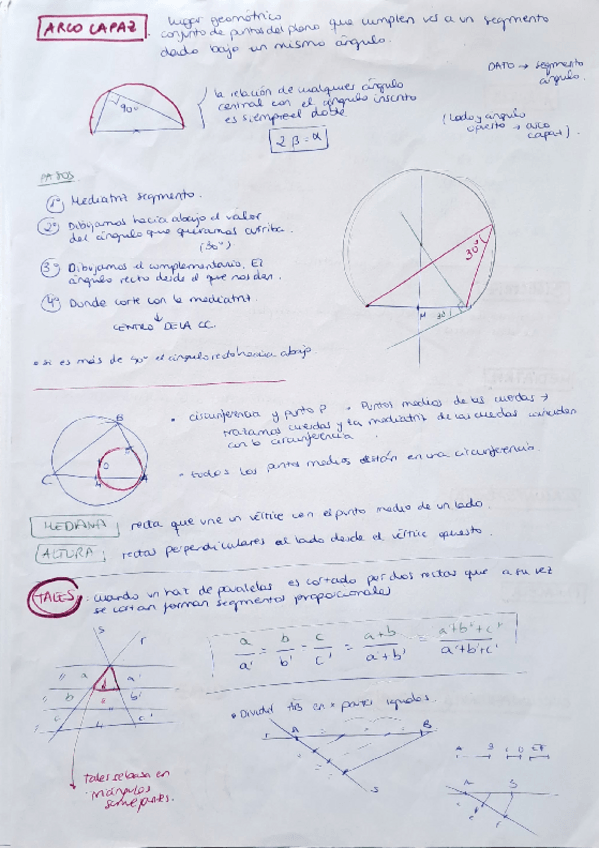 ARCO CAPAZ. lugar geométrico
conjunto de puntos del plano que cumplen ves a un segmento
dado bajo un mismo ángulo.
DATO → segmento
ángulo.
90°
la relación de cualquier ángulo
central con el ángulo inscrito
es siempre el doble
2β = α
(Lado y ángulo
opuesto → arco
capaz).
PASOS
1º Mediatriz segmento.
2º Dibujamos hacia abajo el valor
del ángulo que queramos arriba.
(30°)
3º Dibujamos el complementario. El
ángulo recto desde el que nos dan.
4º Donde corte con la mediatriz.
CENTRO DE LA CC.
30°
M
30°
• si es más de 90° el ángulo recto hacia abajo.
• circunferencia y punto P • Puntos medios de las cuerdas →
trazamos cuerdas y la mediatriz de las cuerdas coinciden
con la circunferencia
• todos los puntos medios están en una circunferencia.
B
C
O
A
MEDIANA; recta que une un vértice con el punto medio de un lado.
ALTURA; rectas perpendiculares al lado desde el vértice opuesto.
TALES: cuando un haz de paralelas es cortado por dos rectas que a su vez
se cortan forman segmentos proporcionales
a/a' = b/b' = c/c' = a+b/a'+b' = a'+b'+c'/a'+b'+c'
s r
a a'
b b'
c c'
Tales se basa en
triángulos
semejantes.
• Dividir AB en x partes iguales.
r A B
s
A B